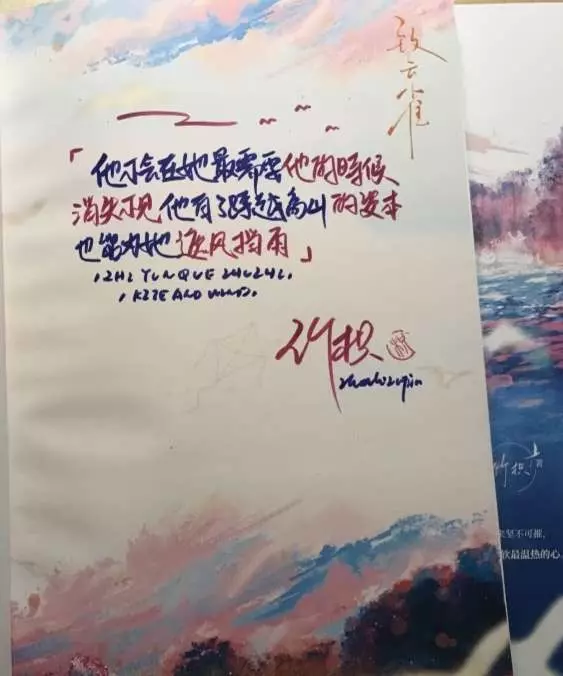 致云雀
「他不会在她最需要他的时候
消失不见 他有了跨越高山的资本
也能为她遮风挡雨」
ZHI YUNQUE ZHUZHI.
KITE AND WIND.
竹枳
竹枳 著
坚不可摧，
饮最温热的心。